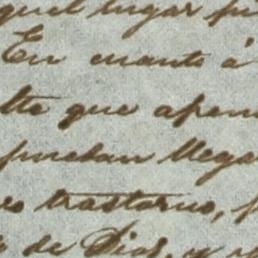 quel lugar pu
En cuanto á
tta que apen
puedan llega
es trastorno, p
s de Dios, y